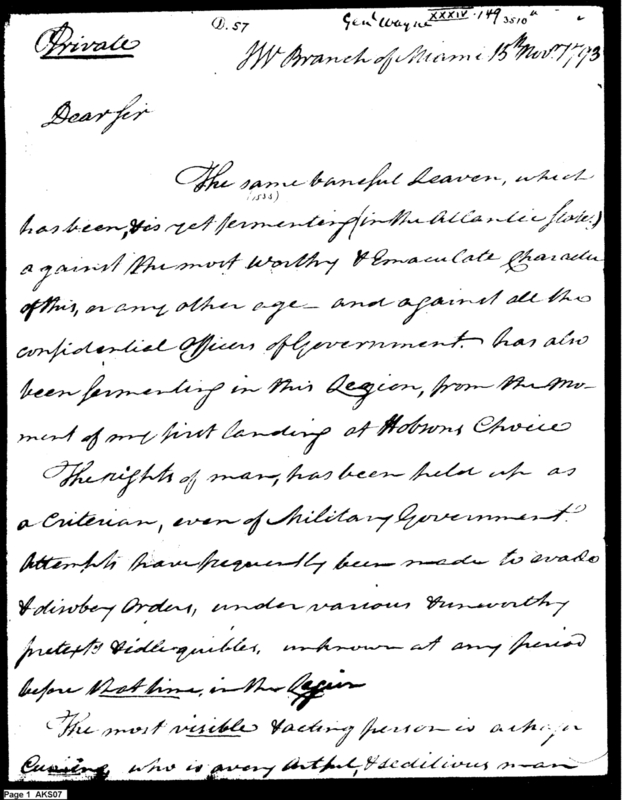 D. 57
Genl Wayne XXXIV - 149
3510
Private
SW Branch of Miami 15th Novr. 1793
Dear Sir
The same baneful Leaven, which
has been, & is yet fermenting (in the Atlantic States)
against the most worthy & Emaculate Character
of this, or any other age - and against all the
confidential Officers of Government. has also
been fermenting in this Legion, from the mo-
ment of my first landing at Hobsons Choice
The rights of man, has been held up as
a Criterian, even of Military Government.
Attempts have frequently been made to evade
& disobey Orders, under various & unworthy
pretexts & idle quibles, unknown at any period
before that time, in the Legion
The most visible & acting person is a Major
Cushing, who is a very Artful, & seditious man
Page 1 AKS07